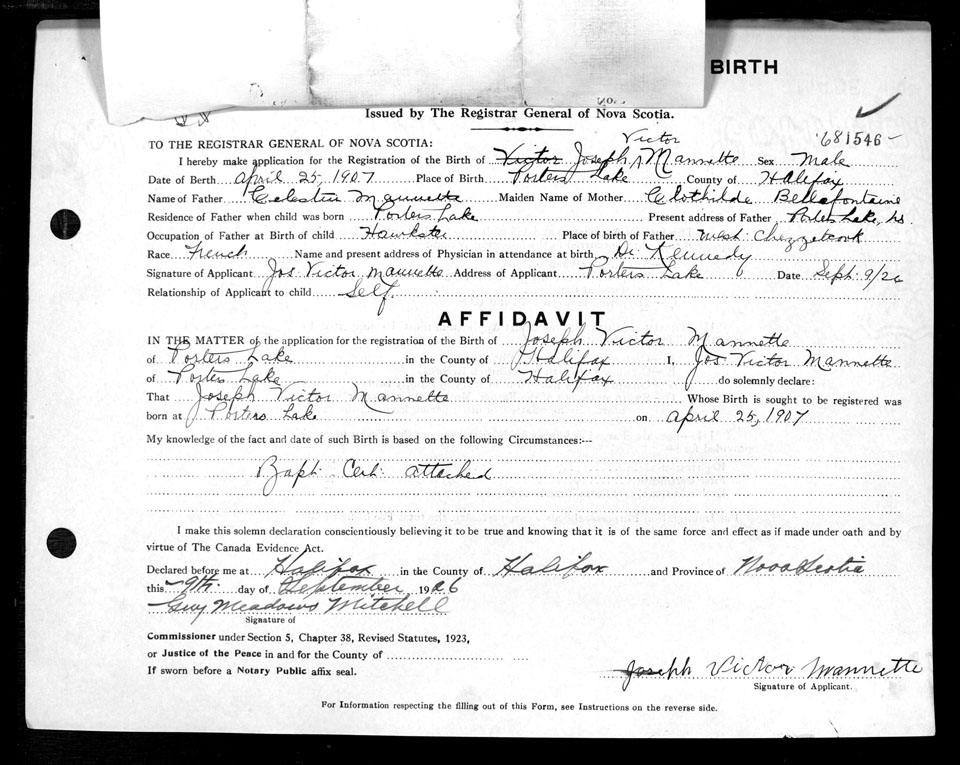 BIRTH
No.
Issued by The Registrar General of Nova Scotia.
681546
TO THE REGISTRAR GENERAL OF NOVA SCOTIA:
Victor
I hereby make application for the Registration of the Birth of Victor Joseph Mannette Sex Male
Date of Berth April 25, 1907 Place of Birth Porters Lake County of Halifax
Name of Father Celestin Mannette Maiden Name of Mother Clothilde Bellafontaine
Residence of Father when child was born Porters Lake Present address of Father Porters Lake, ns.
Occupation of Father at Birth of child Place of birth of Father West Chezzetcook
Race French Name and present address of Physician in attendance at birth Dr Kennedy
Signature of Applicant Jos Victor Mannette Address of Applicant Porters Lake Date Sept 9/26
Relationship of Applicant to child Self.
AFFIDAVIT
IN THE MATTER of the application for the registration of the Birth of Joseph Victor Mannette
of Porters Lake in the County of Halifax I, Jos Victor Mannette
of Porters Lake in the County of Halifax do solemnly declare:
That Joseph Victor Mannette Whose Birth is sought to be registered was
born at Porters Lake on April 25, 1907
My knowledge of the fact and date of such Birth is based on the following Circumstances:--
Bapt. Cert. attached
I make this solemn declaration conscientiously believing it to be true and knowing that it is of the same force and effect as if made under oath and by
virtue of The Canada Evidence Act.
Declared before me at Halifax in the County of Halifax and Province of Nova Scotia
this 9th. day of September 1926
Guy Meadows Mitchell
Signature of
Commissioner under Section 5, Chapter 38, Revised Statutes, 1923,
or Justice of the Peace in and for the County of
If sworn before a Notary Public affix seal.
Joseph Victor Mannette
Signature of Applicant.
For Information respecting the filling out of this Form, see Instructions on the reverse side.